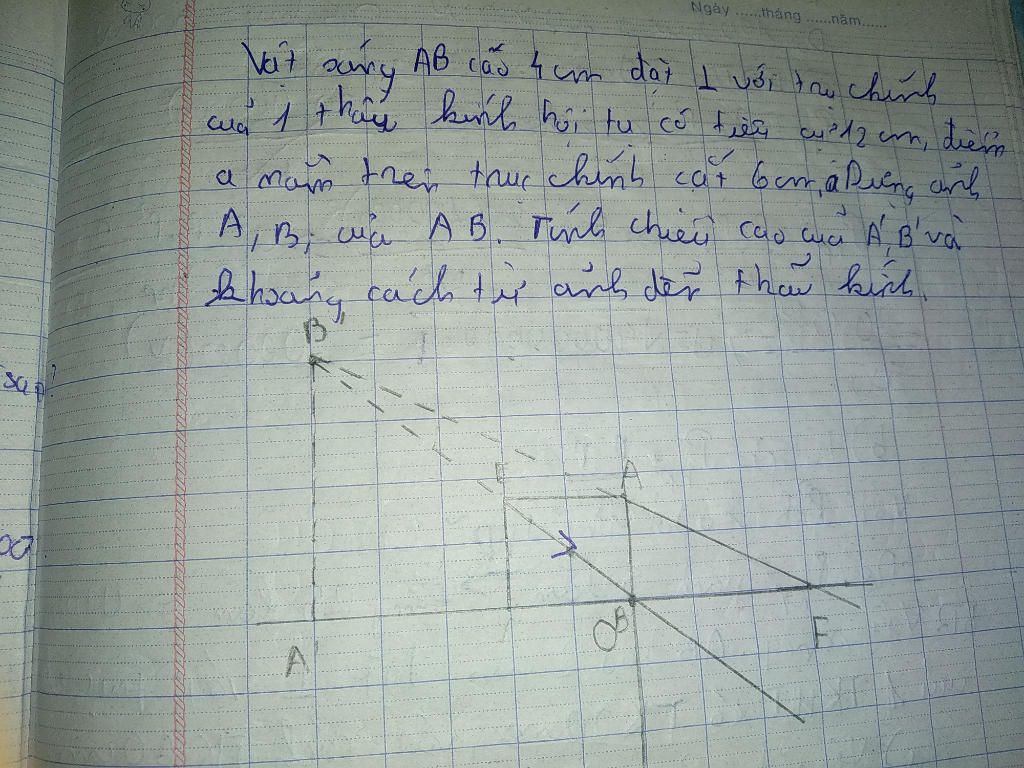 Ngày ......tháng ......năm......
Vật sáng AB cao 4 cm đặt ⊥ với trục chính
của 1 thấu kính hội tụ có tiêu cự 12 cm, điểm
a nằm trên trục chính cắt 6 cm, a Dựng ảnh
A, B, của AB. Tính chiều cao của A', B' và
khoảng cách từ ảnh đến thấu kính.
B'
I A
O B F
A'